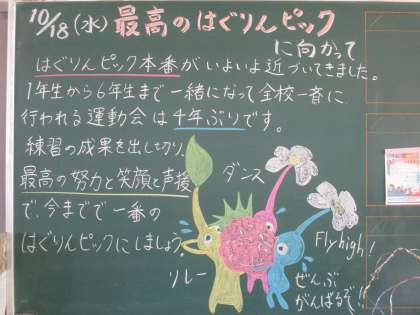 10/18(水) 最高のはぐりんピック
に向かって
はぐりんピック本番がいよいよ近づいてきました。
1年生から6年生まで一緒になって全校一斉に
行われる運動会は4年ぶりです。
練習の成果を出し切り、
最高の努力と笑顔と声援
で、今までで一番の
はぐりんピックにしましょう。
ダンス
Fly high!
リレー
ぜんぶ
がんばるぞ!!